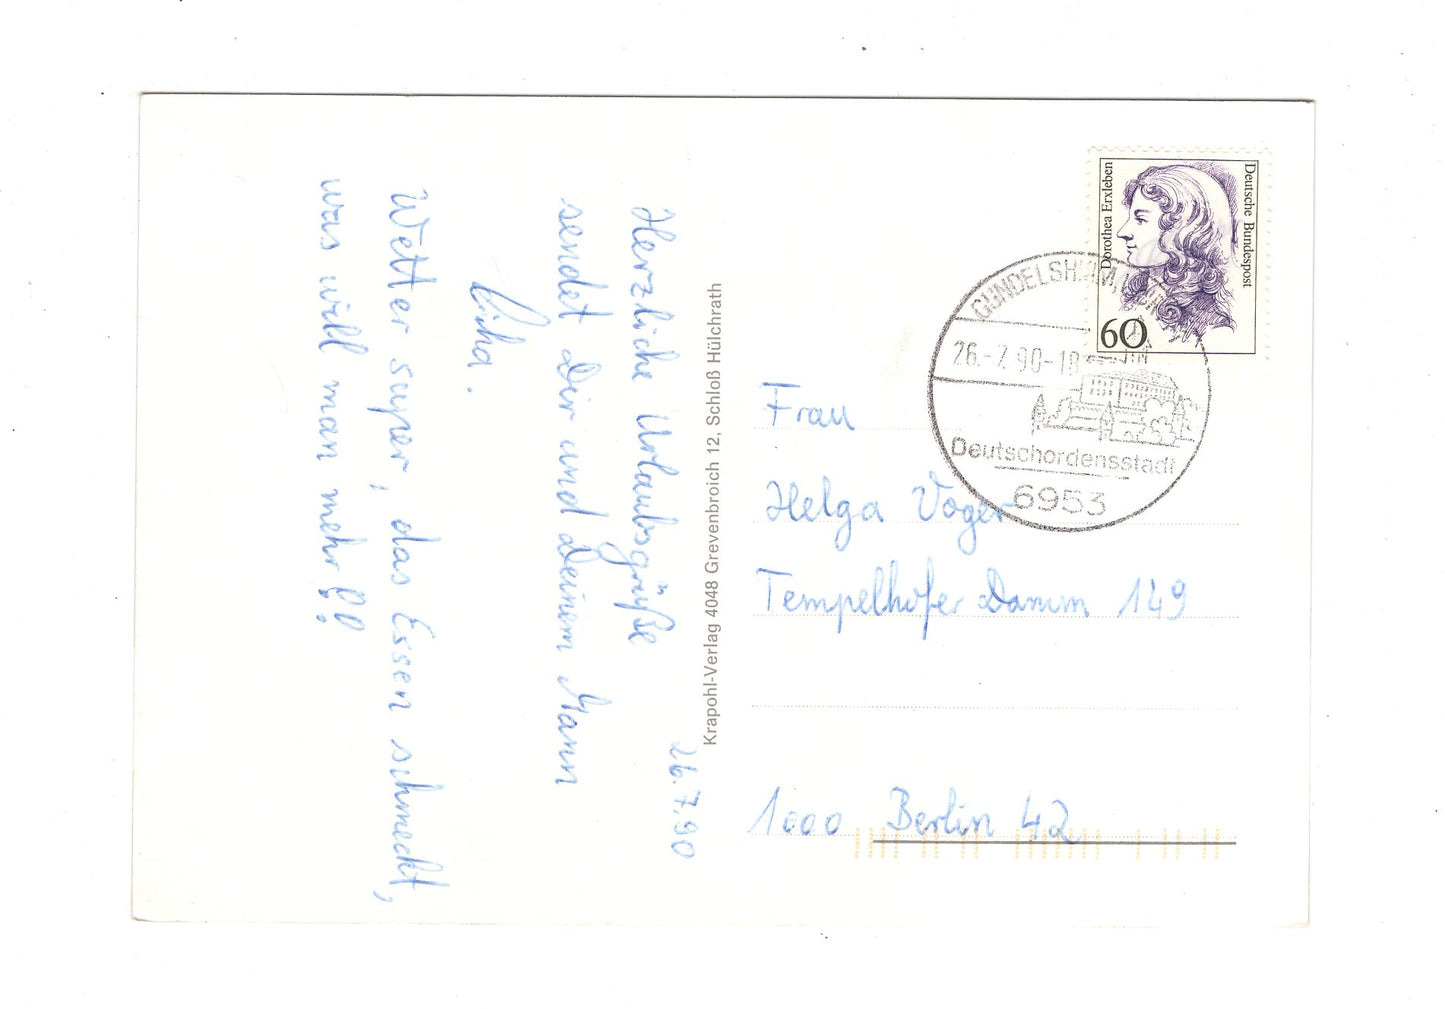 26.7.90
Herzliche Urlaubsgrüße
sendet Dir und Deinem Mann
Wetter super, das Essen schmeckt,
was will man mehr!?!
Krapohl-Verlag 4048 Grevenbroich 12, Schloß Hülchrath
Deutsche Bundespost
Dorothea Erxleben
60
GUNDELSHEIM,
26.-7.90-18
Deutschordensstadt
6953
Frau
Helga Voger
Tempelhofer Damm 149
1000 Berlin 42